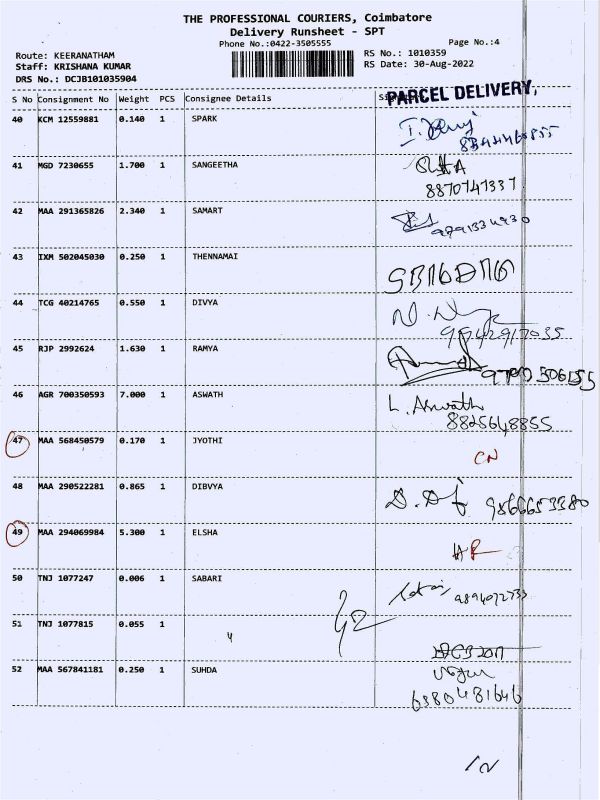 THE PROFESSIONAL COURIERS, Coimbatore
Delivery Runsheet - SPT
Phone No.:0422-3505555 Page No.:4
Route: KEERANATHAM RS No.: 1010359
Staff: KRISHANA KUMAR RS Date: 30-Aug-2022
DRS No.: DCJB101035904
PARCEL DELIVERY,
S No Consignment No Weight PCS Consignee Details
40 KCM 12559881 0.140 1 SPARK
41 MGD 7230655 1.700 1 SANGEETHA
8870747337
42 MAA 291365826 2.340 1 SAMART
9791334930
43 IXM 502045030 0.250 1 THENNAMAI
44 TCG 40214765 0.550 1 DIVYA
45 RJP 2992624 1.630 1 RAMYA
46 AGR 700350593 7.000 1 ASWATH L. Aswath
8825648855
47 MAA 568450579 0.170 1 JYOTHI
CN
48 MAA 290522281 0.865 1 DIBVYA
9866653380
49 MAA 294069984 5.300 1 ELSHA
HR
50 TNJ 1077247 0.006 1 SABARI
9894072733
51 TNJ 1077815 0.055 1
52 MAA 567841181 0.250 1 SUHDA
6380481646